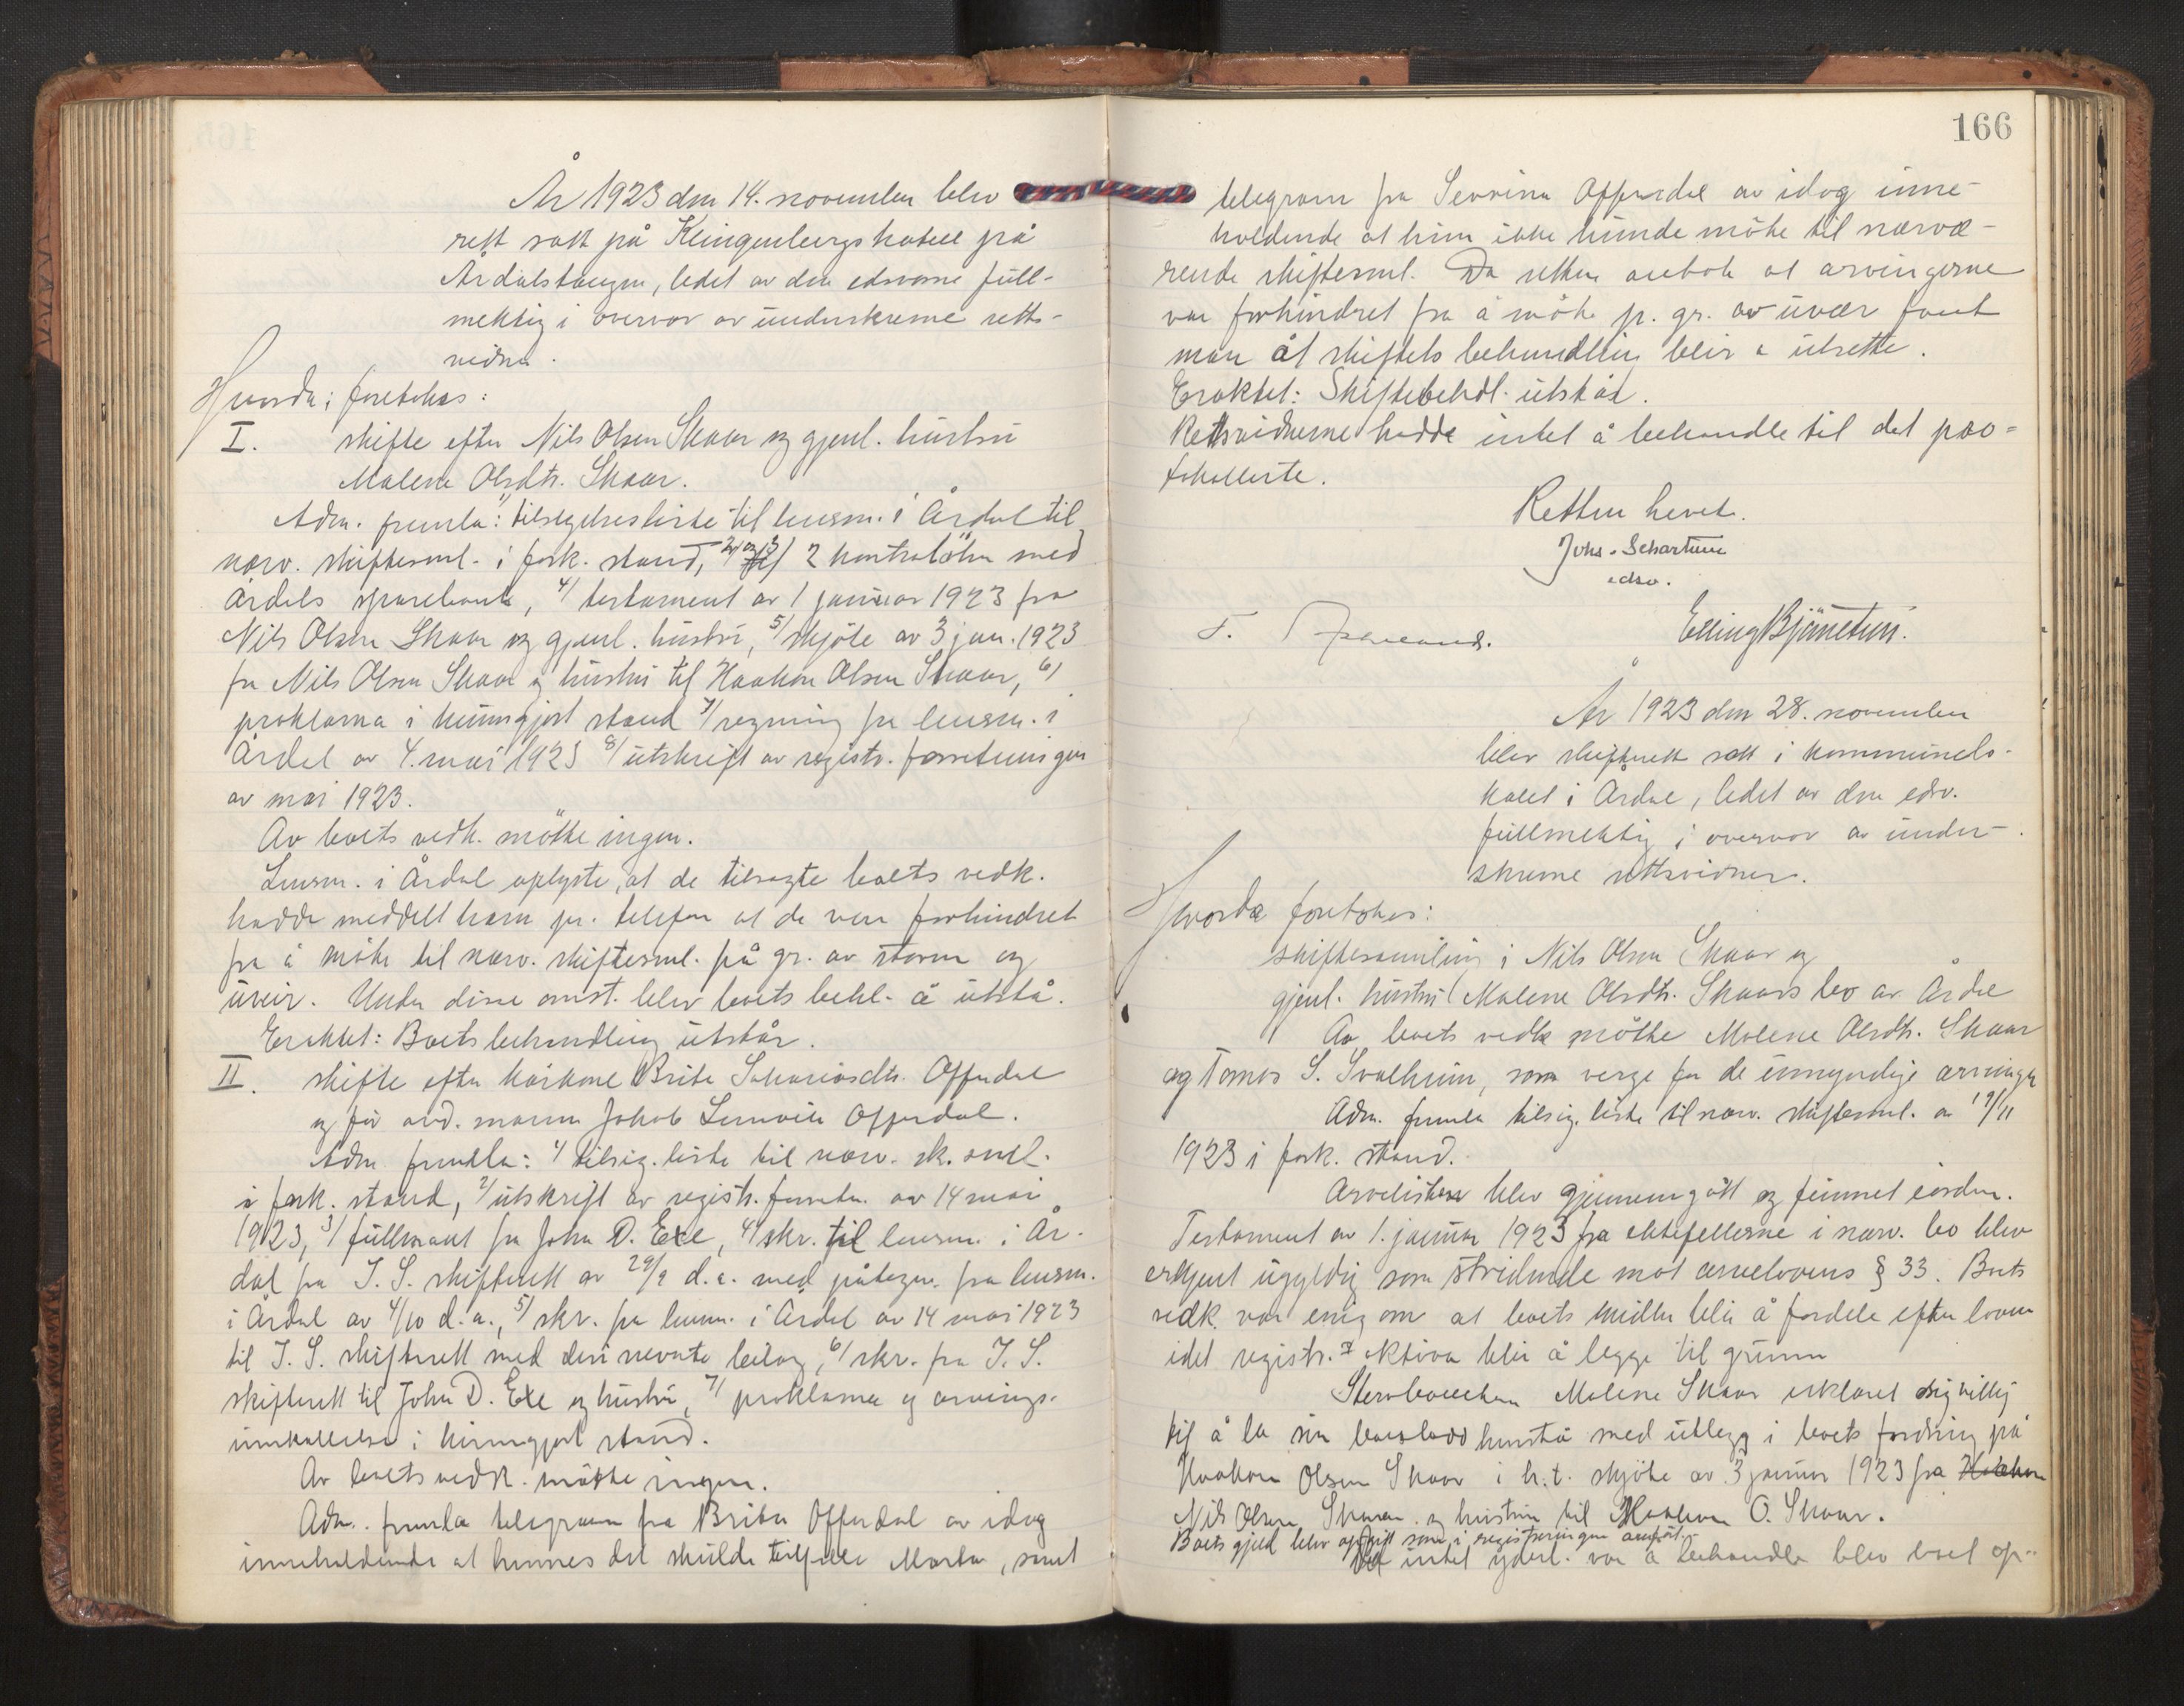 År 1923 den 14. november blev
rett satt på Klingenbergs hotell på
Årdalstangen, ledet av den edsvorne full-
mektig i overvær av underskrevne retts-
vidner.
Hvorda: foretokes:
I. skifte efter Nils Olsen Skaar og gjenl. hustru
Malene Olsdtr. Skaar.
Adm. fremla: tilsigelsesliste til lensm. i Årdal til
nærv. skiftesml. i fork. stand, 2/ og 3/ 2 kontrabøker med
Årdals sparebank, 4/ testament av 1 januar 1923 fra
Nils Olsen Skaar og gjenl. hustru, 5/ skjøte av 3 jan. 1923
fra Nils Olsen Skaar og hustru til Haakon Olsen Skaar, 6/
proklama i kunngjort stand 7/ regning fra lensm. i
Årdal av 4. mai 1923 8/ utskrift av registr. forretningen
av mai 1923.
Av boets vedk. møtte ingen.
Lensm. i Årdal oplyste, at de tilsagte boets vedk.
hadde meddelt ham pr. telefon at de var forhindret
fra å møte til nærv. skiftesml. på gr. av storm og
uveir. Under disse omst. blev boets behl. å utstå.
Eraktet: Boets behandling utstår.
II. skifte efter kårkone Brita Sakariasdtr. Offerdal
og før avd. mann Jakob Offerdal.
Adm fremla: 1/ tilsig. liste til nærv. sk. sml.
i fork. stand, 2/ utskrift av registr. forretn. av 14 mai
1923, 3/ fullmakt fra John D. Exe, 4/ skr. til lensm. i År-
dal fra I. S. skifterett av 29/9 d.a. med påtegn. fra lensm.
i Årdal av 4/10 d.a., 5/ skr. fra lensm. i Årdal av 14 mai 1923
til I. S. skifterett med deri nevnte bilag, 6/ skr. fra I. S.
skifterett til John D. Exe og hustru, 7/ proklama og arvings-
innkallelse i kunngjort stand.
Av boets vedk. møtte ingen.
Adm. fremla telegram fra Brita Offerdal av idag
inneholdende at hennes del skulde tilfalle Marta, samt
166
telegram fra Severina Offerdal av idag inne-
holdende at hun ikke kunde møte til nærvæ-
rende skiftesml. Da retten antok at arvingerne
var forhindret fra å møte p. gr. av uvær fant
man at skiftets behandling blir å utsette.
Eraktet: Skiftebehdl. utstår.
Rettsvidnerne hadde intet å behandle til det pro-
tokollerte.
Retten hevet.
Johs. Schartum
edsv.
T.
Elling Bjåmetun.
År 1923 den 28. november
blev skifterett satt i kommunelo-
kalet i Årdal, ledet av den edsv.
fullmektig i overvær av under-
skrevne rettsvidner.
Hvorda foretokes:
skiftesamling i Nils Olsen Skaar og
gjenl. hustru Malene Olsdtr. Skaars bo av Årdal
Av boets vedk møtte Malene Olsdtr. Skaar
og Tomas S. Svalheim, som verge for de umyndige arvinger
Adm. fremla tilsig. liste til nærv. skiftesml. av 19/11
1923 i fork. stand.
Arvelisten blev gjennemgått og funnet iorden.
Testament av 1. januar 1923 fra ektefellerne i nærv. bo blev
erkjent ugyldig som stridende mot arvelovens § 33. Boets
vedk. var enig om at boets midler blir å fordele efter loven
idet registr. aktiva blir å legge til grunn
Stervboenken Malene Skaar erklæret sig villig
til å la sin boeslodd henstå med utlegg i boets fordring på
Haakon Olsen Skaar i h.t. skjøte av 3 januar 1923 fra Haakon
Nils Olsen Skaar og hustru til Haakon O. Skaar.
Boets gjeld blev opgitt som i registreringen anført.
Da intet yderl. var å behandle blev boet op-